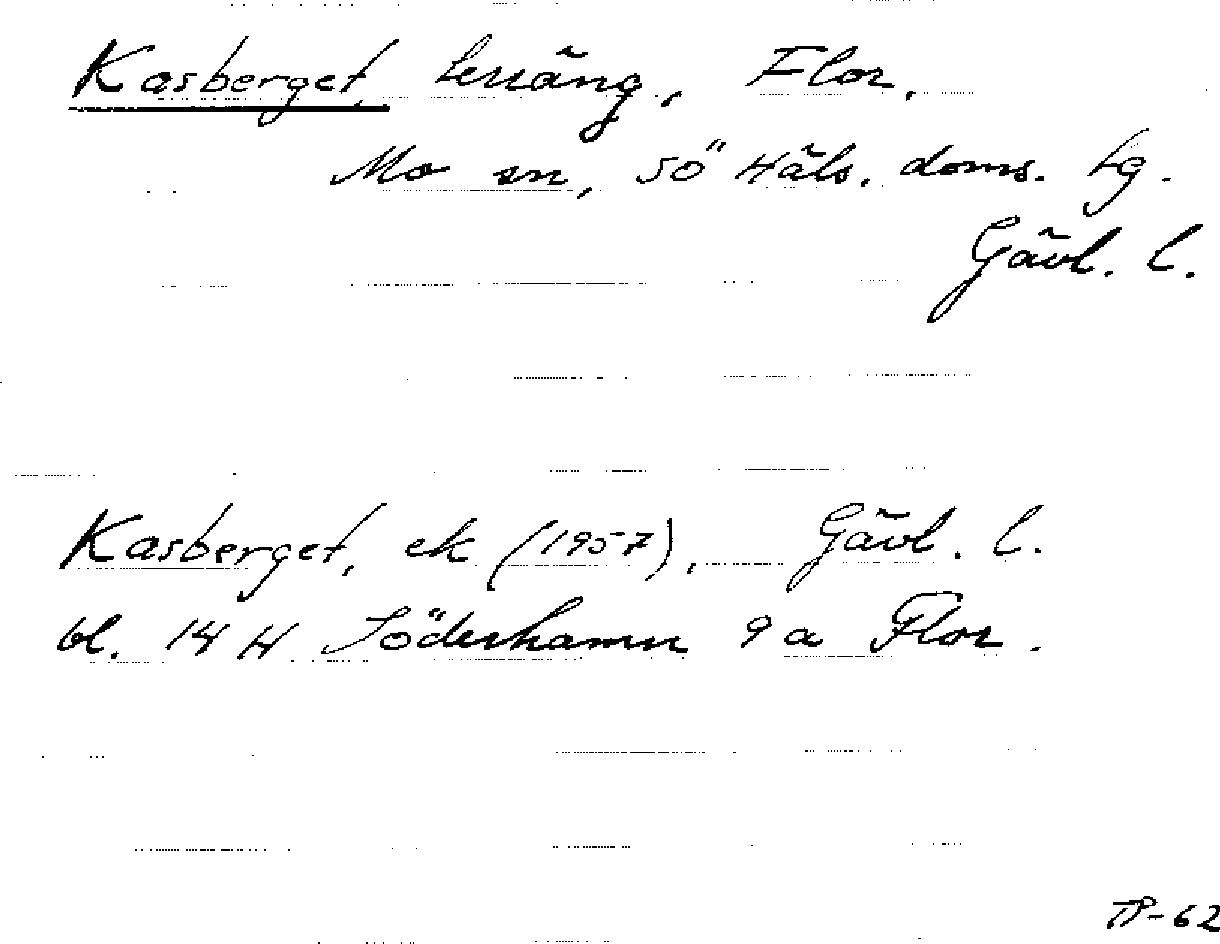 Kasberget, terräng, Flor.
Mo sn, Sö Häls. doms. tg.
Gävl. l.
Kasberget, ek (1957), Gävl. l.
bl. 14 H Söderhamn 9a Flor.
TP-62